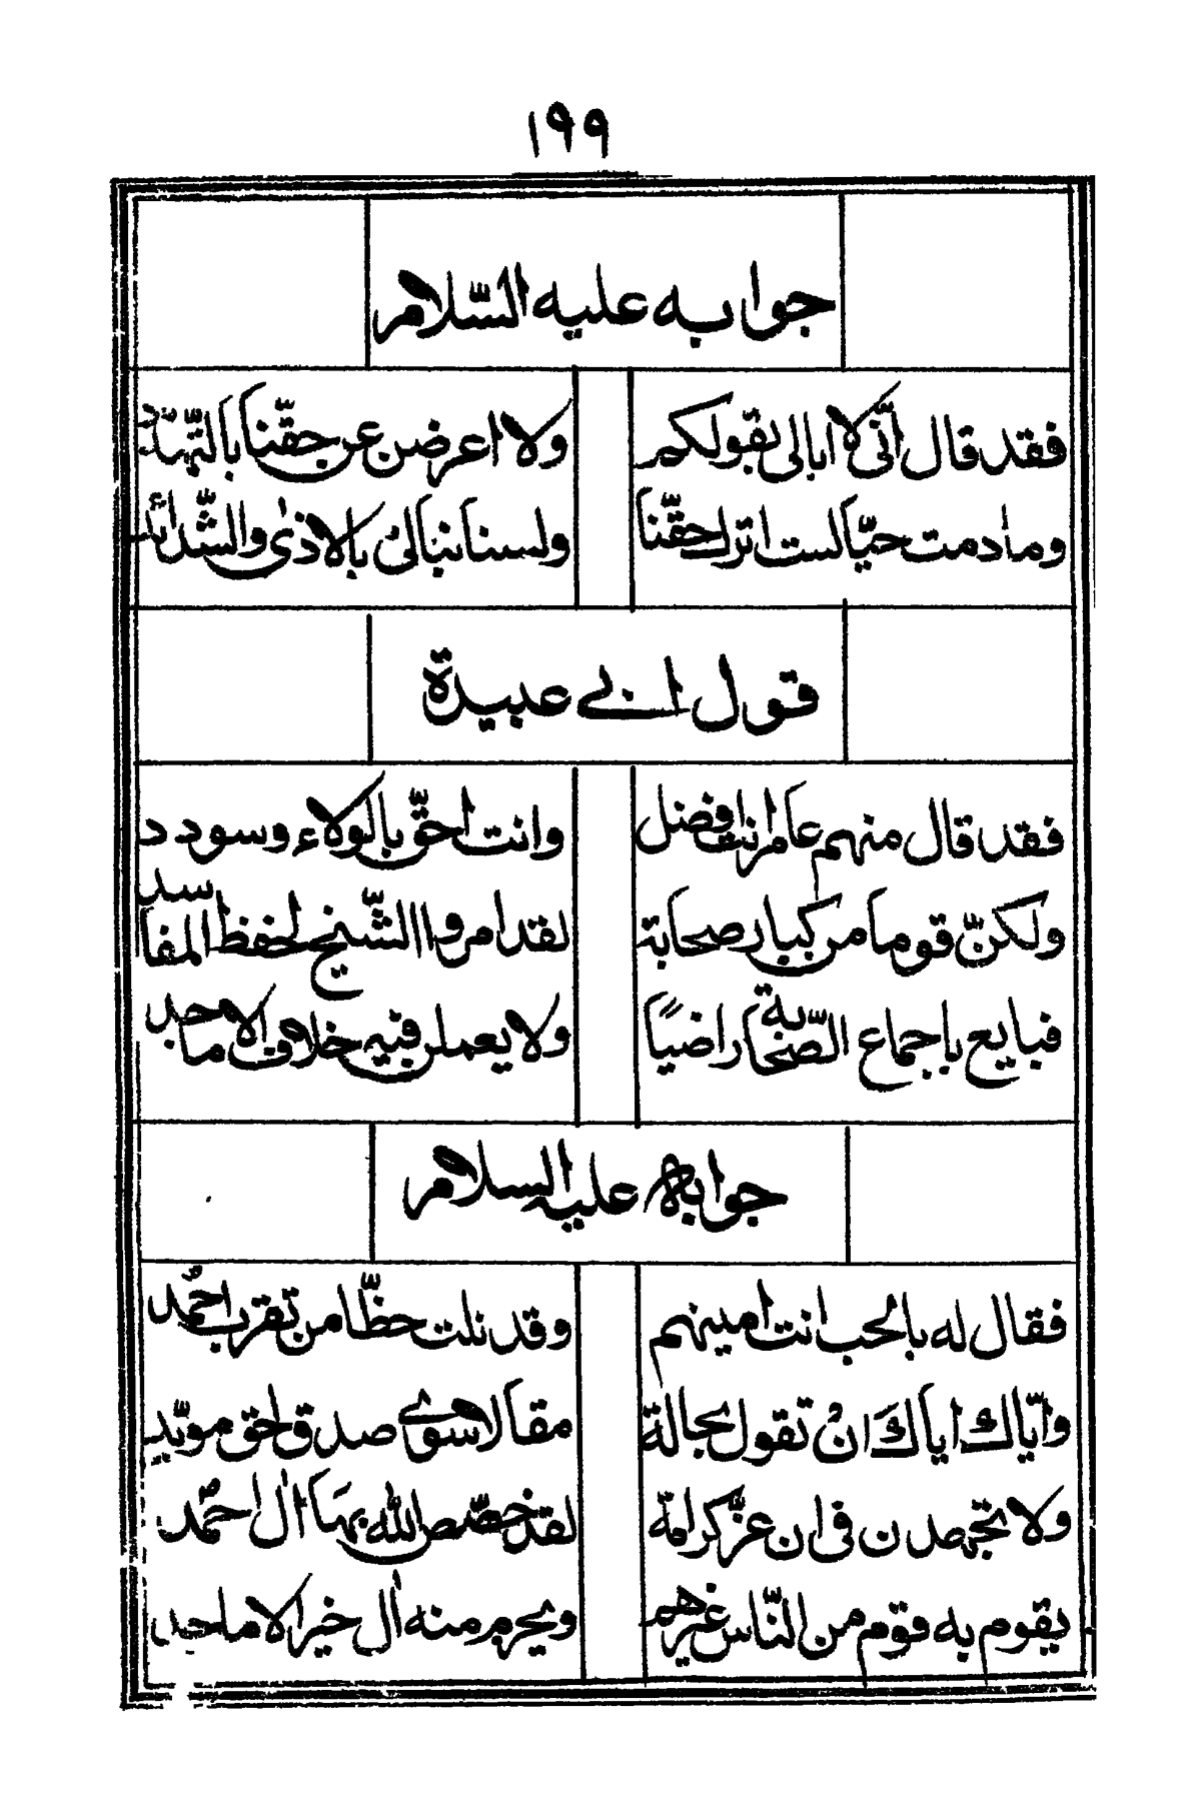 ١٩٩
جوابه عليه السّلام
فقد قال انّى لا ابالى بقولكم ولا اعرضن عن حقّنا بالتّهدّد
وما دمت حيّا لست اترك حقّنا ولسنا نبالى بالاذى والشّدائد
قول ابى عبيدة
فقد قال منهم عامر انت افضل وانت احقّ بالولاء وسودد
ولكنّ قوما من كبار صحابة لقد امروا الشّيخ لحفظ المفاسد
فبايع باجماع الصّحابة راضيًا ولا يعملن فيه خلاف الاماجد
جوابه عليه السلام
فقال له بالحب انت امينهم وقد نلت حظّا من تقرب احمد
وايّاك اياك ان تقول بجالة مقالا سوى صدق لحق مويّد
ولا تجهدن فى ان عزّ كرامة لقد خصّص الله بها ال احمد
يقوم به قوم من النّاس غيرهم ويحرم منه ال خير الاماجد